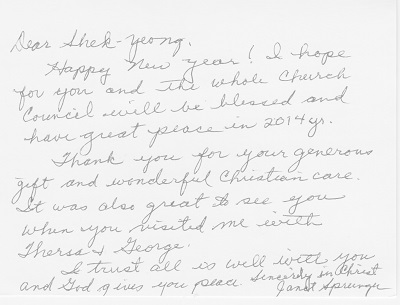 Dear Shek-Yeong.
Happy New year! I hope
for you and the whole Church
Council will be blessed and
have great peace in 2014 yr.
Thank you for your generous
gift and wonderful Christian care.
It was also great to see you
when you visited me with
Thersa & George.
I trust all is well with you
and God gives you peace. Sincerely in Christ
Janet Sprunger